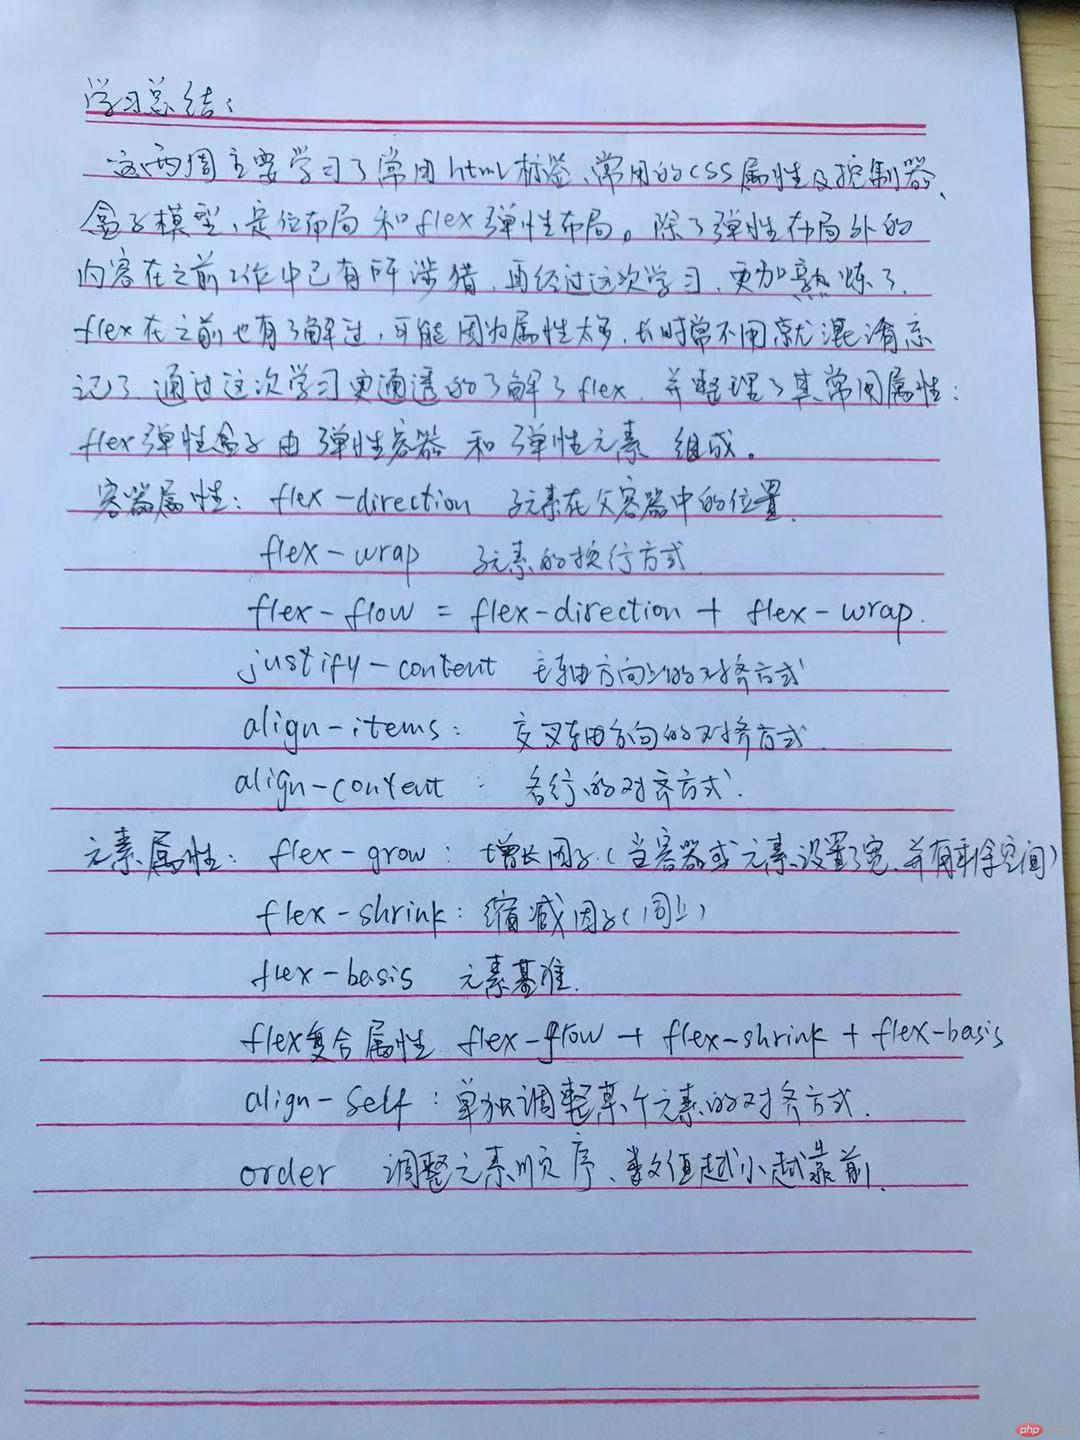 学习总结:
这两周主要学习了常用html标签、常用的CSS属性及控制器、
盒子模型、定位布局和flex弹性布局。除了弹性布局外的
内容在之前工作中已有所涉猎,再经过这次学习,更加熟炼了.
flex在之前也有了解过,可能因为属性太多,长时常不用就混淆忘
记了.通过这次学习更通透的了解了flex.并整理了其常用属性:
flex弹性盒子由弹性容器和弹性元素 组成。
容器属性: flex-direction 子元素在父容器中的位置.
flex-wrap 子元素的换行方式.
flex-flow = flex-direction + flex-wrap.
justify-content 主轴方向上的对齐方式
align-items: 交叉轴方向的对齐方式.
align-content : 各行的对齐方式.
元素属性: flex-grow: 增长因子.(当容器或元素设置了宽、并有剩余空间)
flex-shrink: 缩减因子(同上)
flex-basis 元素基准.
flex复合属性 flex-grow + flex-shrink + flex-basis
align-self: 单独调整某个元素的对齐方式.
order 调整元素顺序、数值越小越靠前.
php